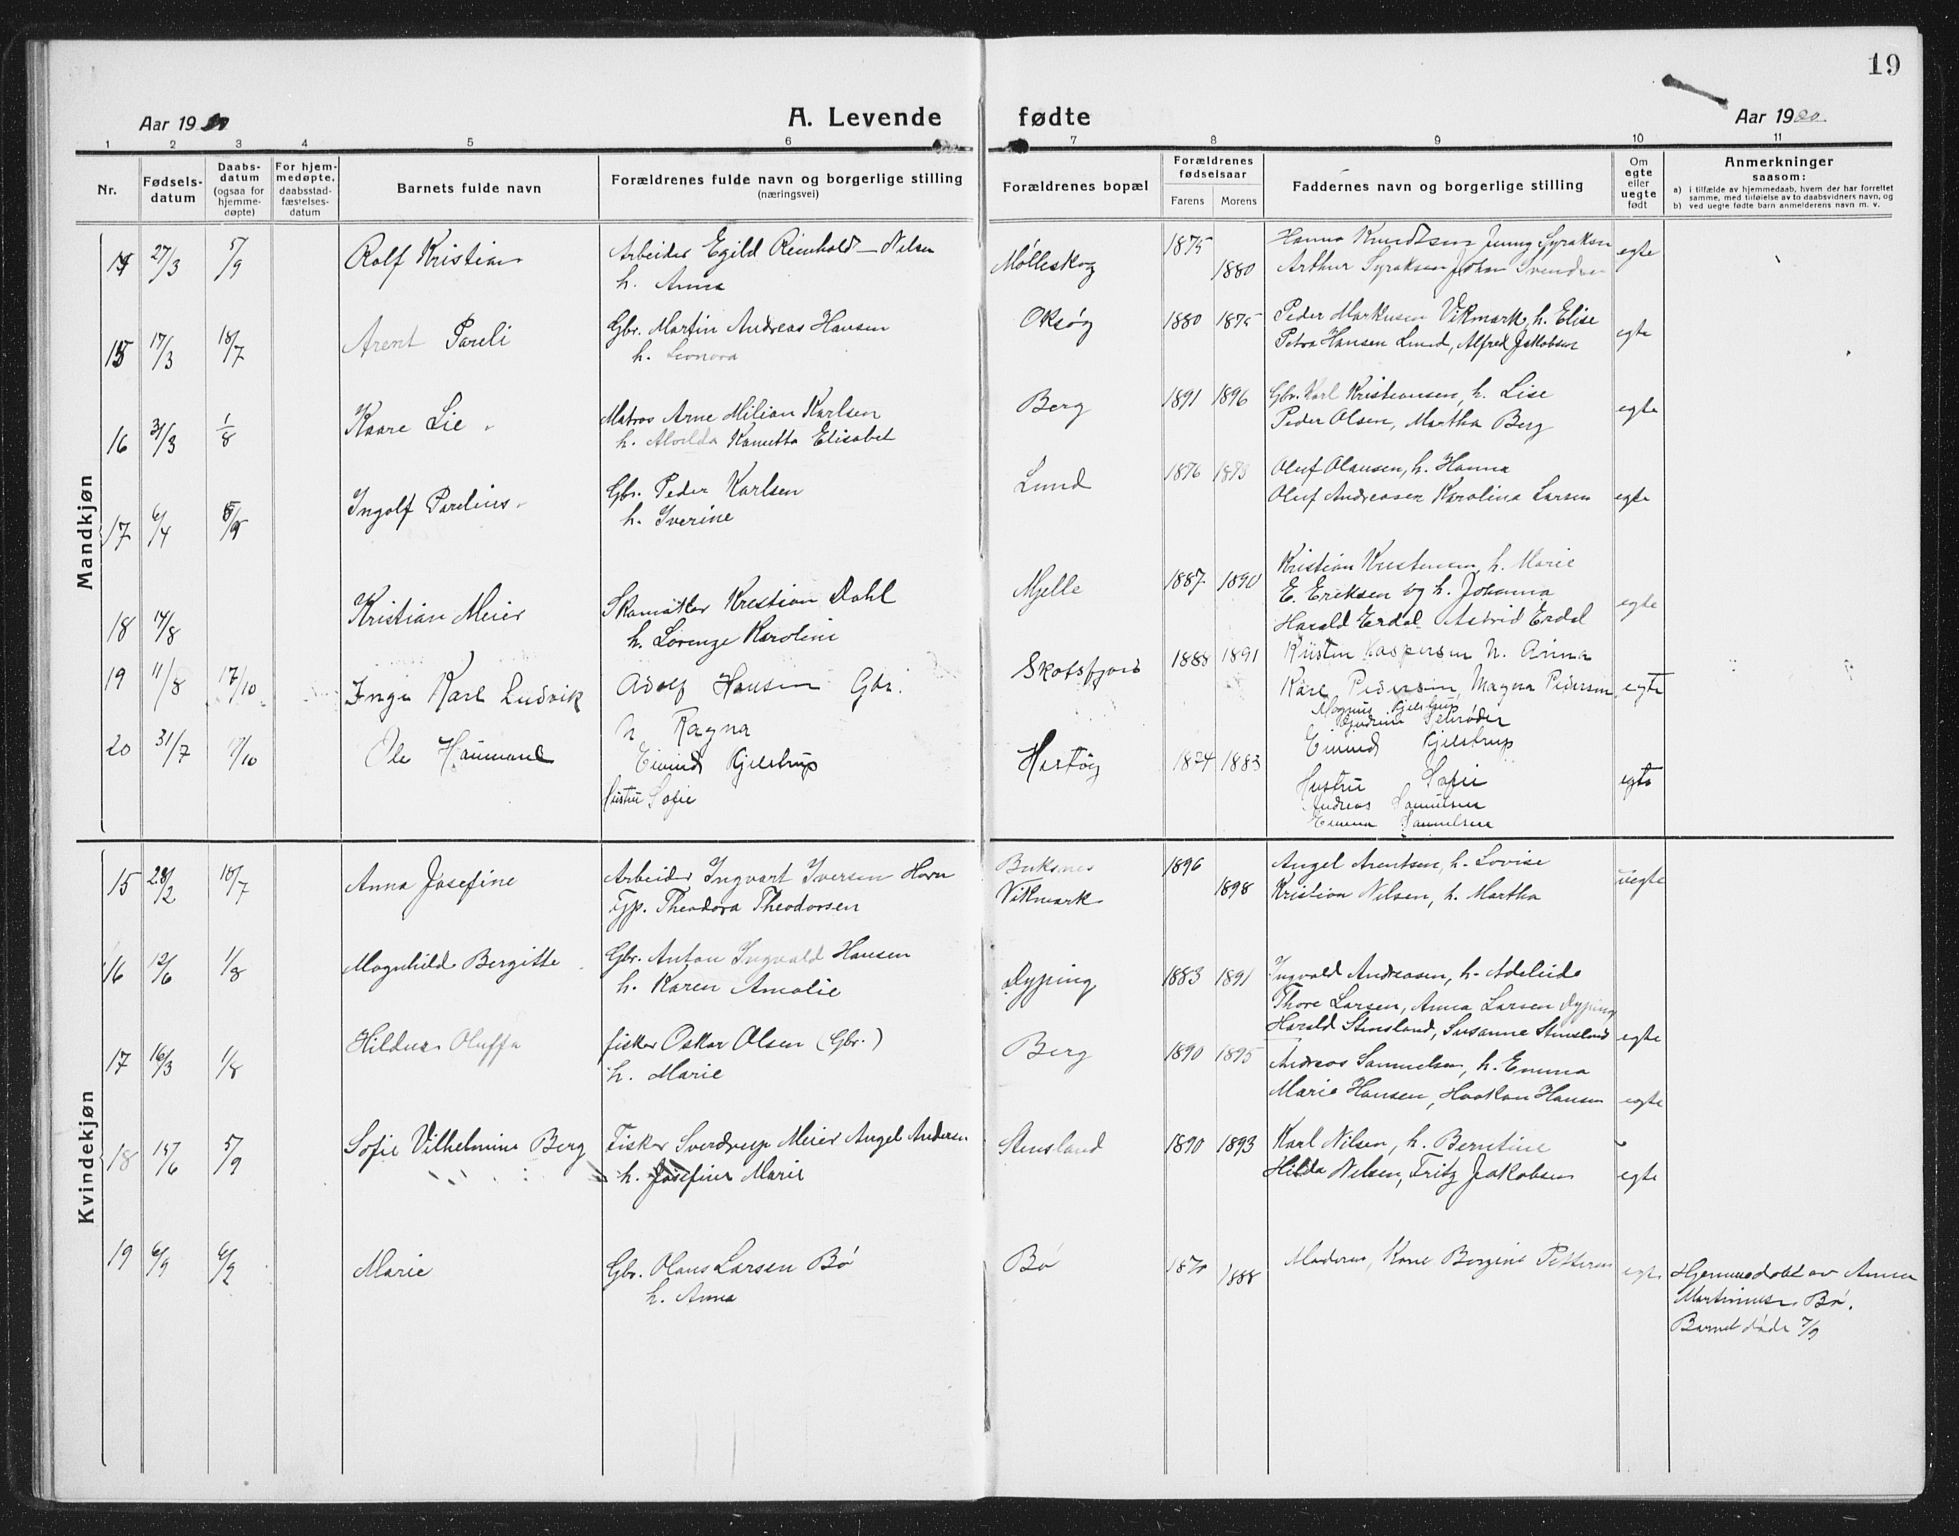 19
Aar 19 A. Levende fødte Aar 1920
1 2 3 4 5 6 7 8 9 10 11
Nr. Fødsels-datum Daabs-datum (ogsaa for hjemme-døpte) For hjem-medøpte, daabsstad-fæstelses-datum Barnets fulde navn Forældrenes fulde navn og borgerlige stilling (næringsvei) Forældrenes bopæl Forældrenes fødselsaar Farens Morens Faddernes navn og borgerlige stilling Om egte eller uegte født Anmerkninger saasom:
a) i tilfælde av hjemmedaab, hvem der har forrettet samme, med tilføielse av to daabsvidners navn, og
b) ved uegte fødte barn anmelderens navn m. v.
Mandkjøn
14 27/3 5/9 Rolf Kristian Arbeider Egild Reinholdt Nilsen Mølleskog 1875 Hanna Knudtsen Jenny Syraksen egte
h. Anna 1880 Arthur Syraksen Johan Svendsen
15 17/3 18/7 Arent Pareli Gbr. Martin Andreas Hansen Oksøy 1880 1875 Peder Markusen Vikmark, h. Elise egte
h. Leonora Petra Hansen Lund, Alfred Jakobsen
16 31/3 1/8 Kaare Lie Matros Arne Milian Karlsen Berg 1891 1896 Gbr. Karl Kristiansen, h. Lise egte
h. Alvilda Kanutta Elisabet Peder Olsen, Martha Berg
17 6/4 5/9 Ingolf Parelius Gbr. Peder Karlsen Lund 1876 1873 Oluf Olausen, h. Hanna
h. Iverine Oluf Andreasen Karolina Larsen egte
18 14/8 Kristian Meier Skomaker Krestian Dahl Mjelle 1887 1890 Kristian Kristensen, h. Marie
h. Lorenze Karoline E. Eriksen og h. Johanna egte
Harald Erdal Astrid Erdal
19 11/8 17/10 Inge Karl Ludvik Adolf Hansen Gbr. Skotsfjord 1888 1891 Kristen Kaspersen h. Anna
h. Ragna Kare Pedersen, Magna Pedersen egte
Magnus Kjelstrup
Gudrun Schrøder
20 31/7 7/10 Ole Haumand Eivind Kjelstrup Hestøy 1874 1883 Eivind Kjelstrup egte
Hustru Sofie Hustru Sofie
Andreas Samuelsen
Emma Samuelsen
Kvindekjøn
15 28/2 18/7 Anna Josefine Arbeider Ingvart Iversen Horn Buksnes 1896 Angel Arentsen, h. Lovise uegte
Tjp. Theodora Theodorsen Vikmark 1898 Kristian Nilsen, h. Martha
16 12/6 1/8 Magnhild Bergitte Gbr. Anton Ingvald Hansen Dyping 1883 1891 Ingvald Andreasen, h. Adeleide
h. Karen Amalie Thore Larsen, Anna Larsen Dyping
Harald Stensland, Susanne Stensland egte
17 16/3 1/8 Hildur Oluffa fisker Oskar Olsen (Gbr.) Berg 1890 1895 Andreas Samuelsen, h. Emma
h. Marie Marie Hansen, Haakon Hansen egte
18 15/6 5/9 Sofie Vilhelmine Berg Fisker Sverdrup Meier Angel Andersen Stensland 1890 1893 Karl Nilsen, h. Berntine
h. Josefine Marie Hilda Nilsen, Fritz Jakobsen egte
19 6/9 6/9 Marie Gbr. Olaus Larsen Bø Bø 1870 Moderen, Kone Bergine Pettersen egte Hjemmedøbt av Anna
h. Anna 1888 Martinusen Bø.
Barnet døde 7/9